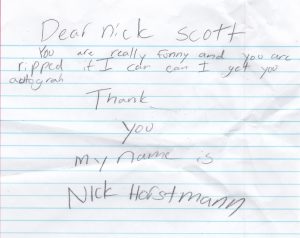 Dear nick scott
You are really funny and you are
ripped if I can can I get you
autograh
Thank
you
my name is
Nick Horstmann